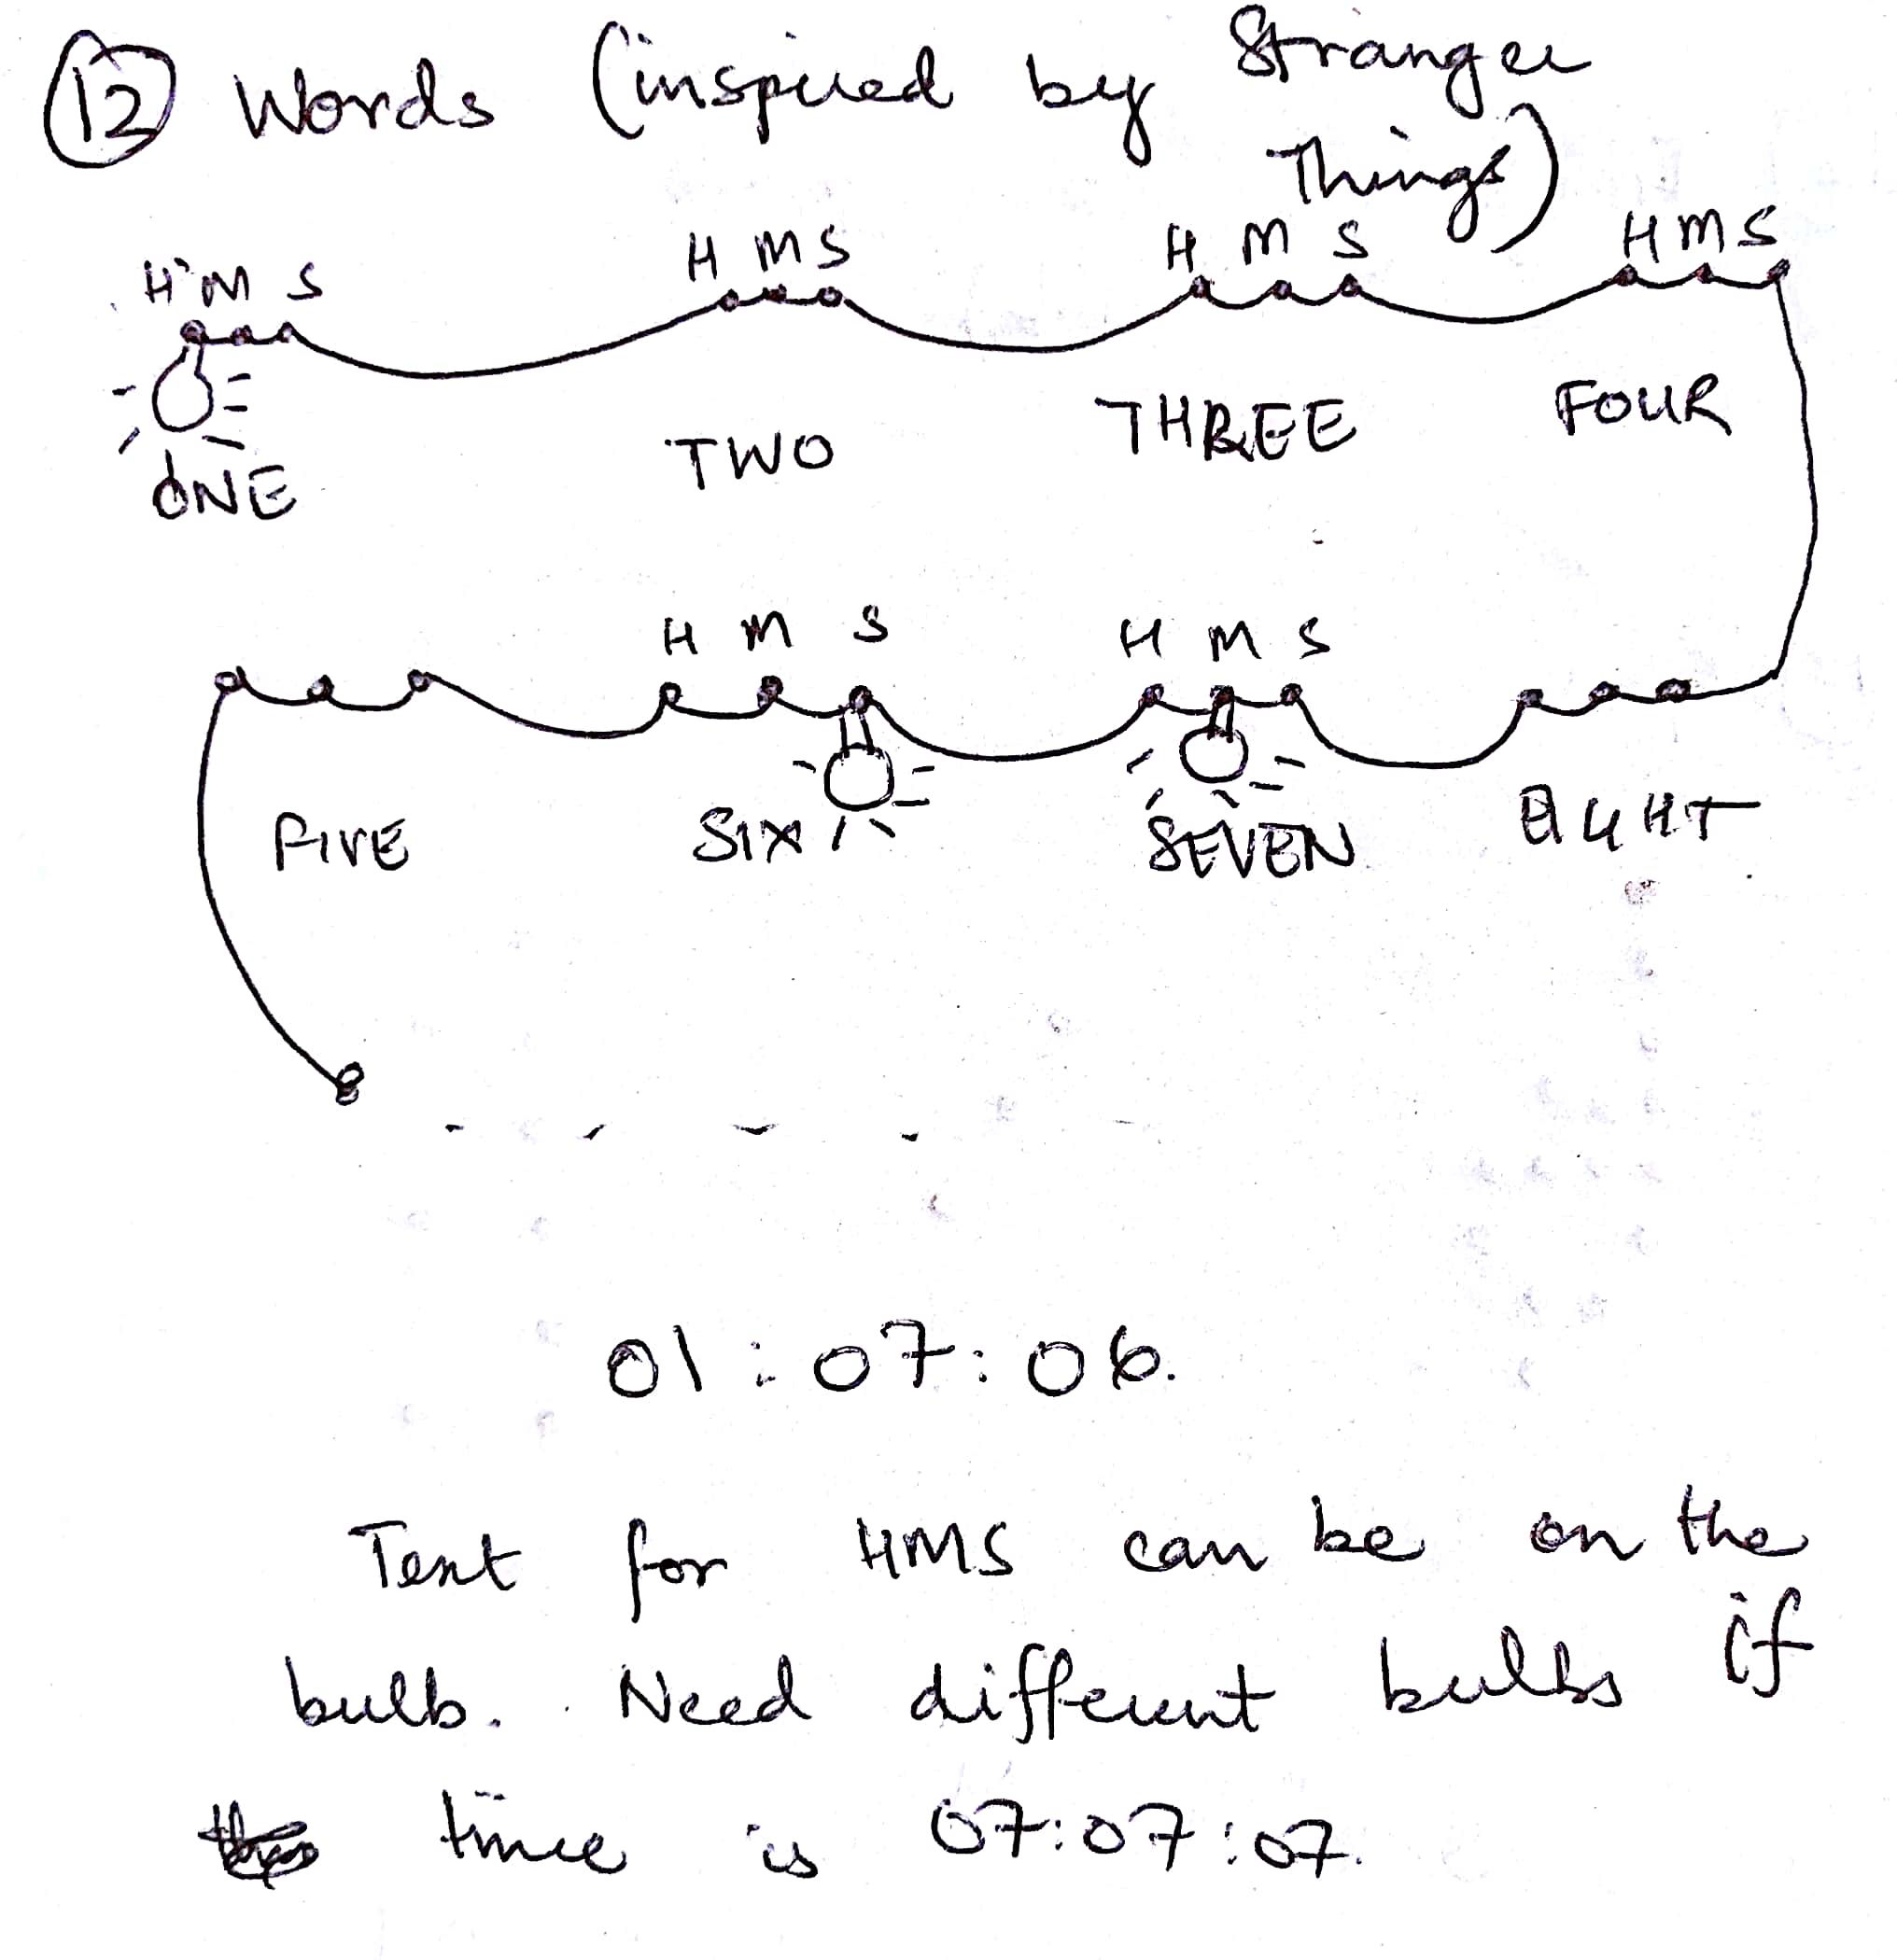 12 Words (inspired by Stranger
Things)
H M S H M S H M S H M S
ONE TWO THREE FOUR
H M S H M S
FIVE SIX SEVEN EIGHT
01:07:06.
Text for HMS can be on the
bulb. Need different bulbs if
time is 07:07:07.